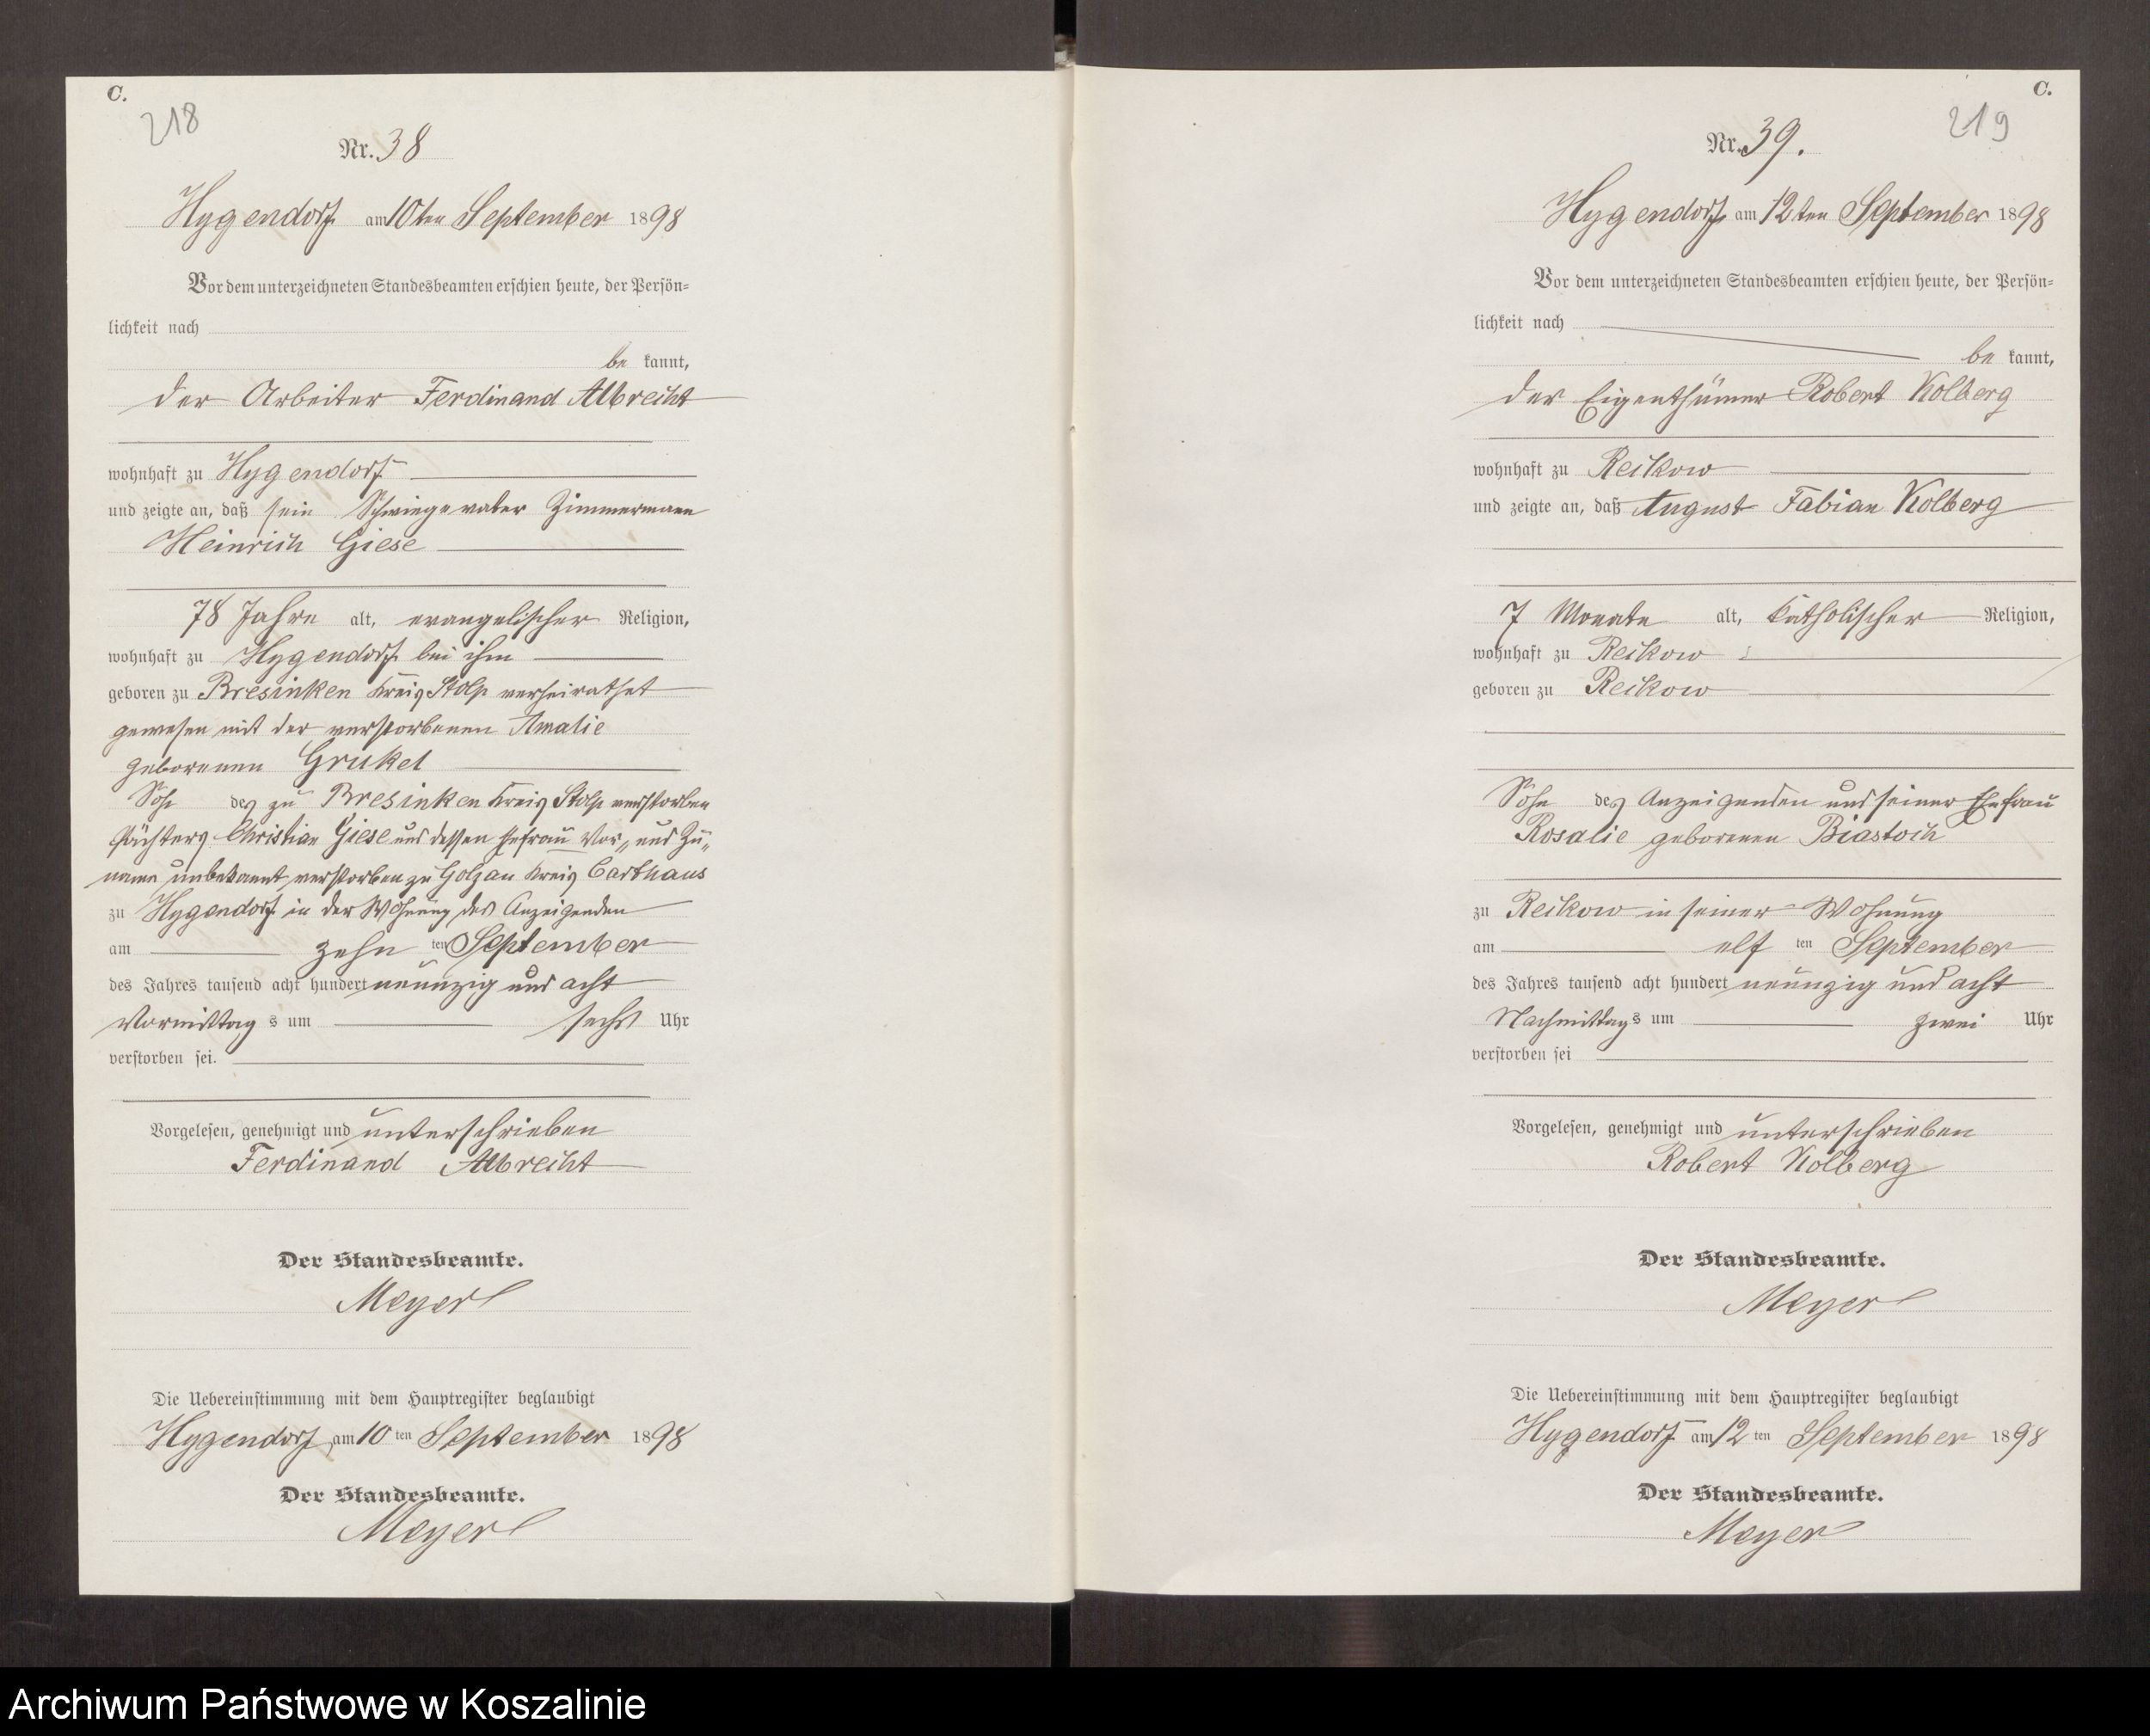 C.
218
Nr. 38
Hygendorf am 10ten September 1898
Vor dem unterzeichneten Standesbeamten erschien heute, der Persön=
lichkeit nach
be kannt,
der Arbeiter Ferdinand Albrecht
wohnhaft zu Hygendorf
und zeigte an, daß sein Schwiegervater Zimmermann
Heinrich Giese
78 Jahre alt, evangelischer Religion,
wohnhaft zu Hygendorf bei ihm
geboren zu Bresinken Kreis Stolp verheirathet
gewesen mit der verstorbenen Amalie
geborenen Grukel
Sohn des zu Bresinken Kreis Stolp verstorben
Pächters Christian Giese und dessen Ehefrau Vor„ und Zu„
name unbekannt verstorben zu Golzau Kreis Carthaus
zu Hygendorf in der Wohnung des Anzeigenden
am zehn ten September
des Jahres tausend acht hundert neunzig und acht
Vormittag s um sechs Uhr
verstorben sei.
Vorgelesen, genehmigt und unterschrieben
Ferdinand Albrecht
Der Standesbeamte.
Meyer
Die Uebereinstimmung mit dem Hauptregister beglaubigt
Hygendorf am 10 ten September 1898
Der Standesbeamte.
Meyer
C.
219
Nr. 39.
Hygendorf am 12ten September 1898
Vor dem unterzeichneten Standesbeamten erschien heute, der Persön=
lichkeit nach
be kannt,
der Eigenthümer Robert Kolberg
wohnhaft zu Reikow
und zeigte an, daß August Fabian Kolberg
7 Monate alt, katholischer Religion,
wohnhaft zu Reikow
geboren zu Reikow
Sohn des Anzeigenden und seiner Ehefrau
Rosalie geborenen Biastoch
zu Reikow in seiner Wohnung
am elf ten September
des Jahres tausend acht hundert neunzig und acht
Nachmittag s um zwei Uhr
verstorben sei
Vorgelesen, genehmigt und unterschrieben
Robert Kolberg
Der Standesbeamte.
Meyer
Die Uebereinstimmung mit dem Hauptregister beglaubigt
Hygendorf am 12 ten September 1898
Der Standesbeamte.
Meyer
Archiwum Państwowe w Koszalinie